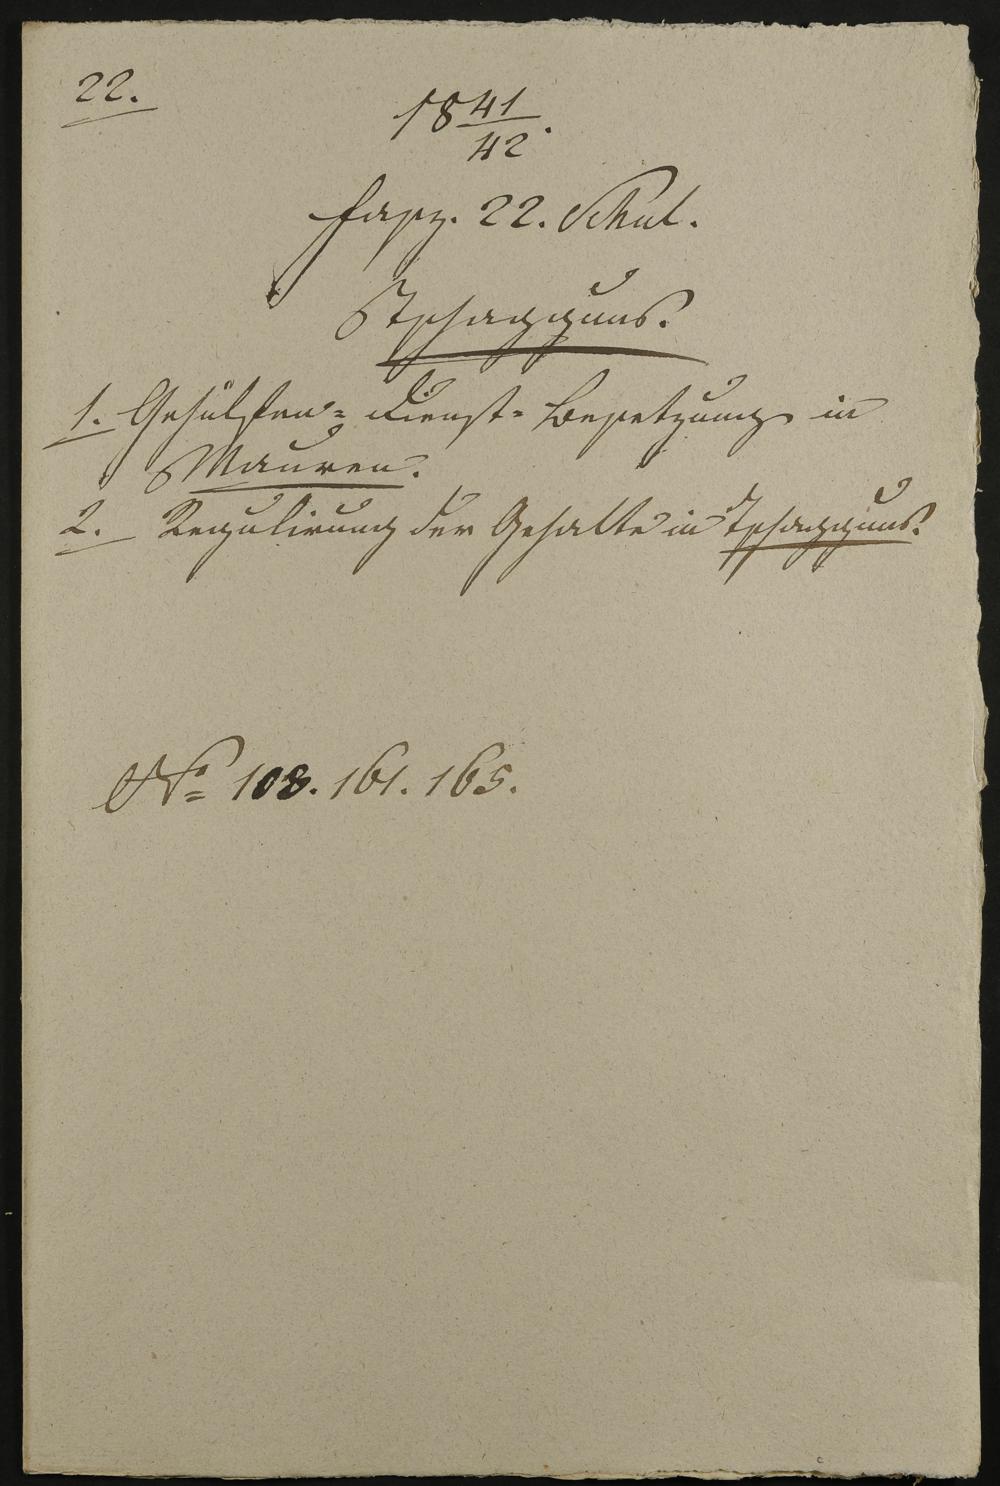 22.
18 41/42.
Fasz. 22. Schul.
Tschagguns.
1. Gehülfen- Dienst- Besetzung in
Mauren.
2. Regulirung der Gehalte in Tschagguns.
No 108. 161. 165.